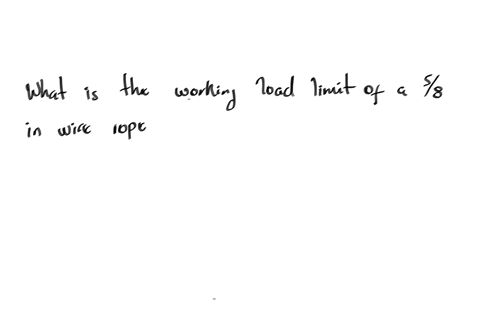 What is the working load limit of a 5/8
in wire rope